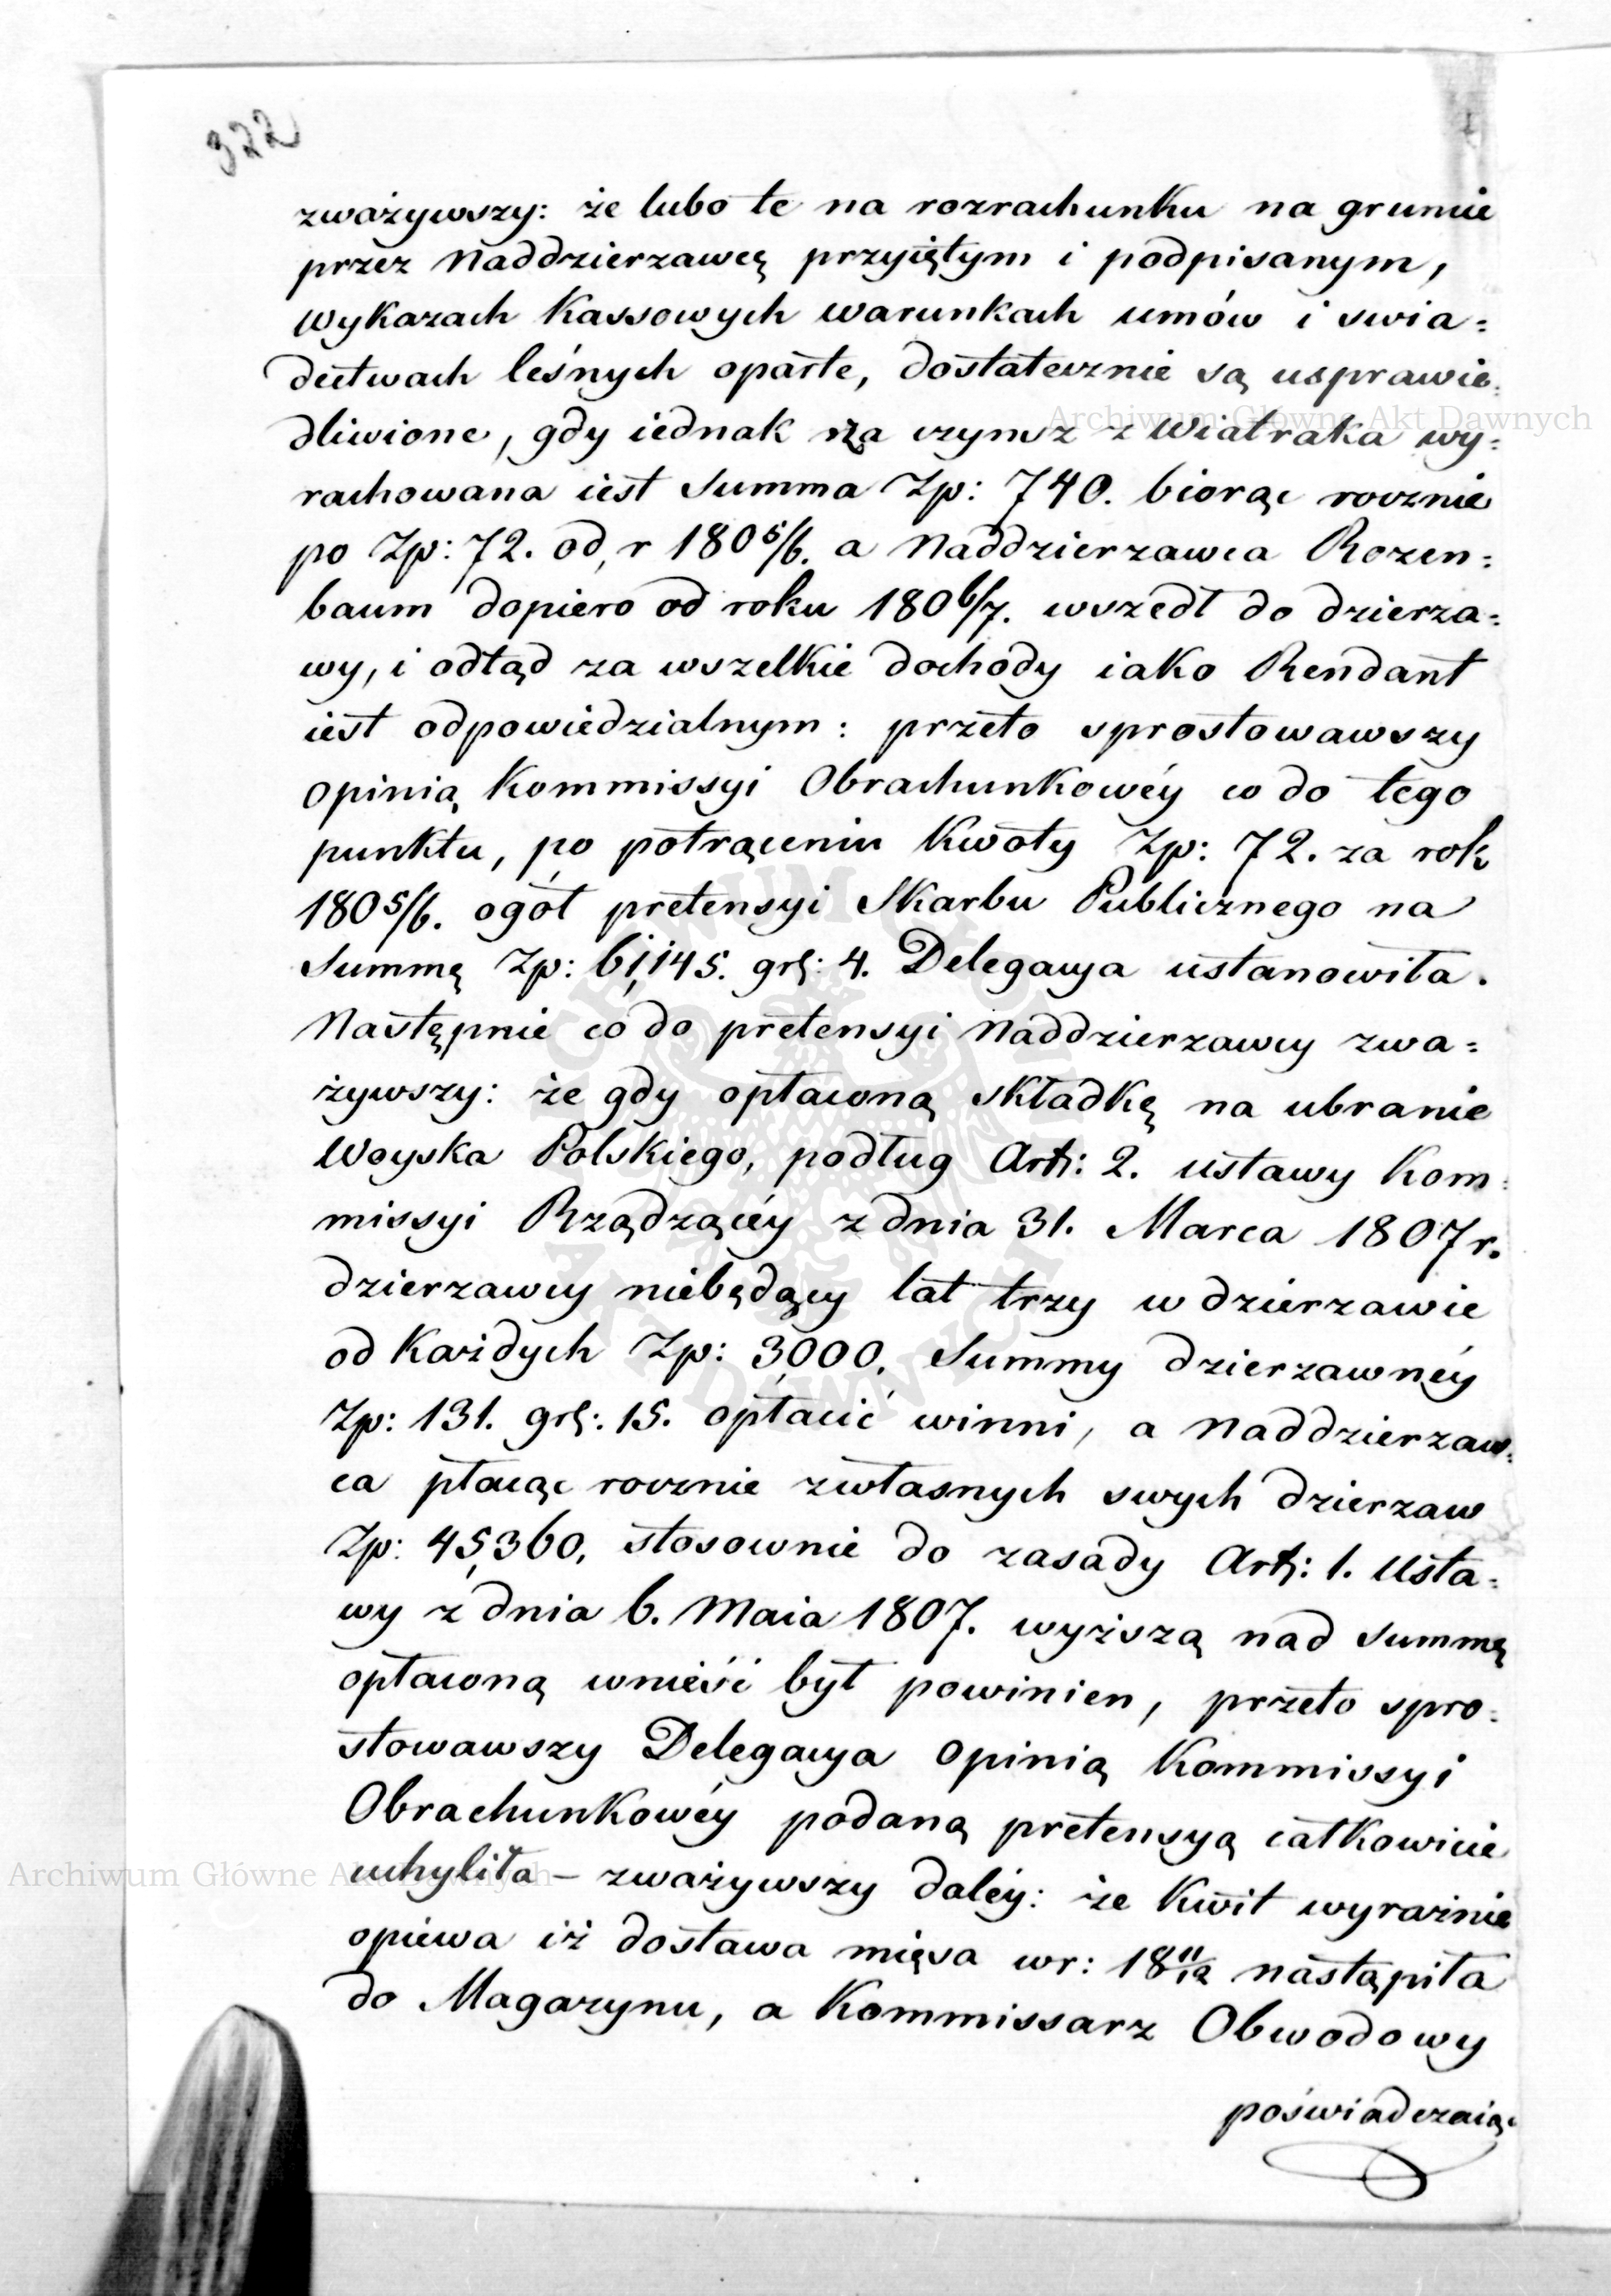 322
zważywszy: że lubo te na rozrachunku na gruncie
przez Naddzierzawcę przyiętym i podpisanym,
Wykazach Kassowych warunkach umów i swia=
dectwach leśnych oparte, dostatecznie są usprawie=
dliwione, gdy iednak za czynsz z Wiatraka wy=
rachowana iest Summa Zp: 740. biorąc rocznie
po Zp: 72. od r 1805/6. a Naddzierzawca Rozen=
baum dopiero od roku 1806/7. wszedł do dzierza=
wy, i odtąd za wszelkie dochody iako Rendant
iest odpowiedzialnym: przeto sprostowawszy
Opinią Kommissyi Obrachunkowéy co do tego
punktu, po potrąceniu Kwoty Zp: 72. za rok
1805/6. ogół pretensyi Skarbu Publicznego na
Summę Zp: 61,145. gr: 4. Delegacya ustanowiła.
Następnie co do pretensyi Naddzierzawcy zwa=
żywszy: że gdy opłaconą składkę na ubranie
Woyska Polskiego, podług Art: 2. ustawy Kom=
missyi Rządzącéy z dnia 31. Marca 1807 r.
dzierzawcy niebędący lat trzy w dzierzawie
od Każdych Zp: 3,000. Summy dzierzawnéy
Zp: 131. gr: 15. opłacić winni, a Naddzierzaw=
ca płacąc rocznie z własnych swych dzierzaw
Zp: 45,360, stosownie do zasady Art: 1. Usta=
wy z dnia 6. Maia 1807. wyższą nad summę
opłaconą wnieść był powinien, przeto spro=
stowawszy Delegacya Opinią Kommissyi
Obrachunkowéy podaną pretensyą całkowicie
uchyliła – zważywszy daléy: że Kwit wyraźnie
opiewa iż dostawa mięsa w r: 18 11/12 nastąpiła
do Magazynu, a Kommissarz Obwodowy
poświadczaiąc
Archiwum Główne Akt Dawnych
Archiwum Główne Akt Dawnych